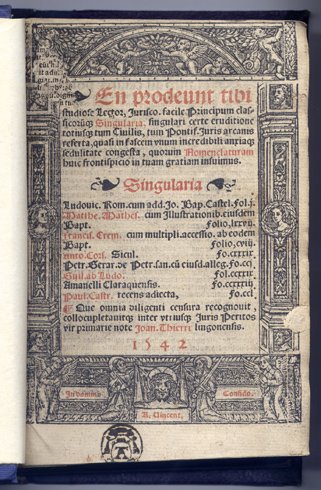 En prodeunt tibi
studiose Lector, Jurisco. facile Principum clas-
sicorumq; Singularia. singulari certe eruditione
totiusq; tum Civilis, tum Pontif. Juris arcanis
referta, quasi in fascem unum incredibili anxiaq;
sedulitate congesta, quorum Nomenclaturam
huic frontispicio in tuam gratiam intulimus.
Singularia
Ludovic. Rom. cum add. Jo. Bap. Castel. Fol. j.
Matthe. Mathes. cum Illustrationib. eiusdem
Bapt. Folio, lxxvij.
Francis. Crem. cum multipli. accessio. ab eodem
Bapt. Folio, cviij.
Anto. Cors. Sicul. Fo. cxxxix.
Petr. Gerar. de Petr. san. cū eiusd. alleg. Fo. ccj
Guil. ab Ludo. Fol. ccxxij
Amanelli Claraquensis. Fo. ccxxxiij
Paul. Castr. recens adiecta, Fo. ccl
Que omnia diligenti censura recognovit,
collocupletauitq; inter vtriusq; Juris Peritos
vir primarie note Joan. Thierri lingonensis.
1542
In domino
Confido.
A. Vincent.